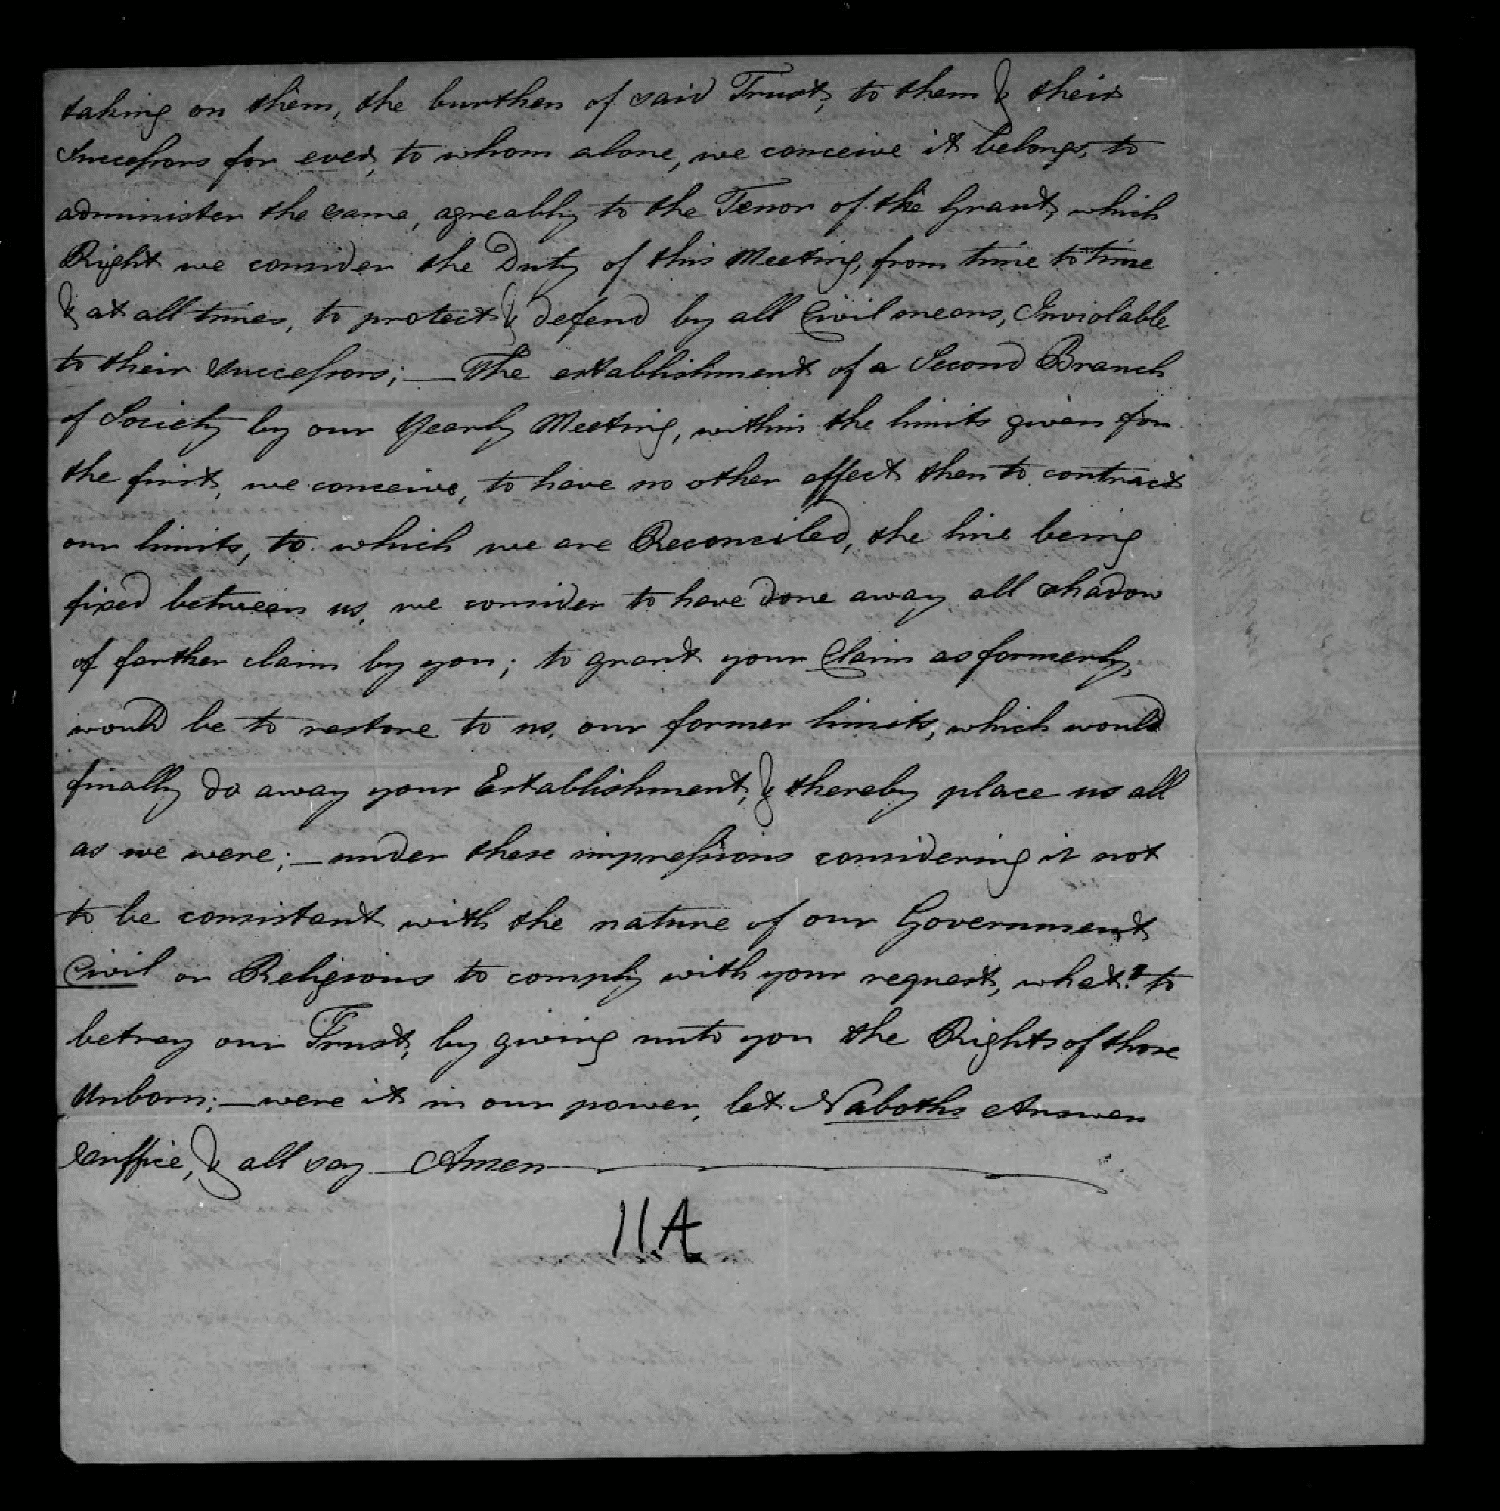 taking on them, the burthen of said Trust, to them & their
Successors for ever, to whom alone, we conceive it belongs, to
administer the same, agreably to the Tenor of the Grant, which
Right we consider the Duty of this Meeting, from time to time
& at all times, to protect & defend by all Civil means, Inviolable
to their Successors; — The establishment of a Second Branch
of Society by our Yearly Meeting, within the limits given for
the first, we conceive, to have no other effect then to contract
our limits, to which we are Reconciled, the line being
fixed between us, we consider to have done away all shadow
of farther claim by you; to grant your Claim as formerly,
would be to restore to us, our former limits, which would
finally do away your Establishment, & thereby place us all
as we were; — under these impressions considering it not
to be consistant with the nature of our Government
Civil or Religious to comply with your request, what? to
betray our Trust, by giving unto you the Rights of those
Unborn; — were it in our power, let Naboths Answer
Suffice, & all say — Amen —
11A